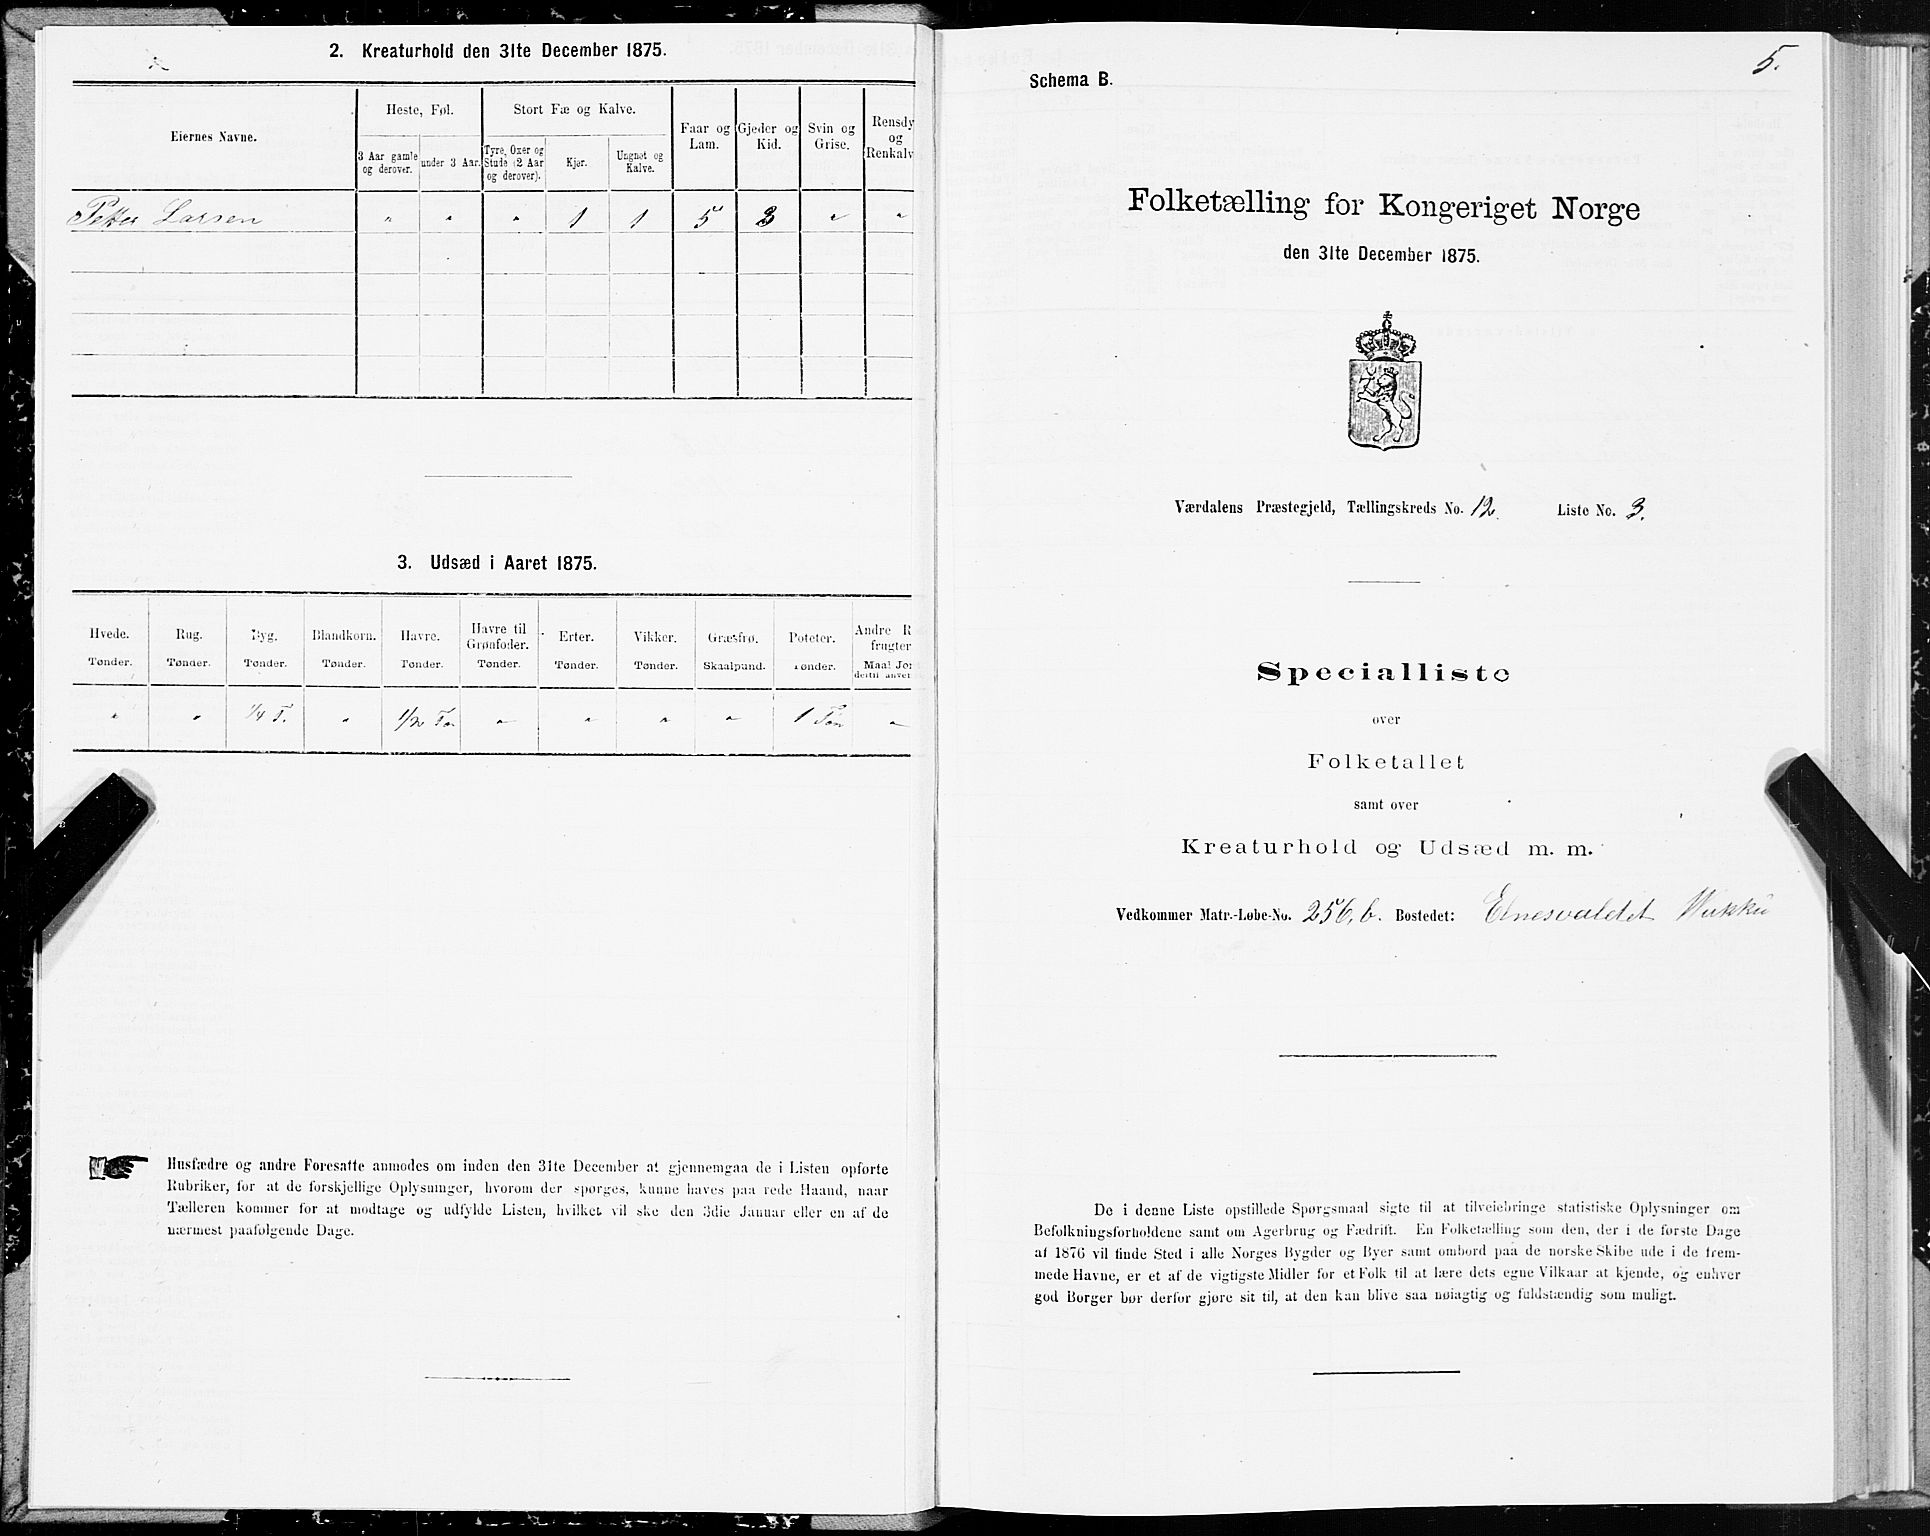 2. Kreaturhold den 31te December 1875.
Eiernes Navne.
Heste, Føl.
Stort Fæ og Kalve.
Faar og Lam.
Gjeder og Kid.
Svin og Grise.
Rensdy
og
Renkalv
3 Aar gamle og derover.
under 3 Aar.
Tyre, Oxer og Stude (2 Aar og derover).
Kjør.
Ungnøt og Kalve.
Petter Larsen " " " 1 1 5 3 " "
3. Udsæd i Aaret 1875.
Hvede. Rug. Byg. Blandkorn. Havre. Havre til Grønfoder. Erter. Vikker. Græsfrø. Poteter. Andre R
frugter
Tønder. Tønder. Tønder. Tønder. Tønder. Tønder. Tønder. Tønder. Skaalpund. Tønder. Maal Jor
dertil anven
" " 1/4 T. " 1/2 Tø " " " " 1 Tøn "
Husfædre og andre Foresatte anmodes om inden den 31te December at gjennemgaa de i Listen opførte
Rubriker, for at de forskjellige Oplysninger, hvorom der spørges, kunne haves paa rede Haand, naar
Tælleren kommer for at modtage og udfylde Listen, hvilket vil ske den 3die Januar eller en af de
nærmest paafølgende Dage.
5.
Schema B.
Folketælling for Kongeriget Norge
den 31te December 1875.
Værdalens Præstegjeld, Tællingskreds No. 12. Liste No. 3.
Specialliste
over
Folketallet
samt over
Kreaturhold og Udsæd m. m.
Vedkommer Matr.-Løbe-No. 256, b. Bostedet: Elnesvaldet Wukku
De i denne Liste opstillede Spørgsmaal sigte til at tilveiebringe statistiske Oplysninger om
Befolkningsforholdene samt om Agerbrug og Fædrift. En Folketælling som den, der i de første Dage
af 1876 vil finde Sted i alle Norges Bygder og Byer samt ombord paa de norske Skibe ude i de frem-
mede Havne, er et af de vigtigste Midler for et Folk til at lære dets egne Vilkaar at kjende, og enhver
god Borger bør derfor gjøre sit til, at den kan blive saa nøiagtig og fuldstændig som muligt.